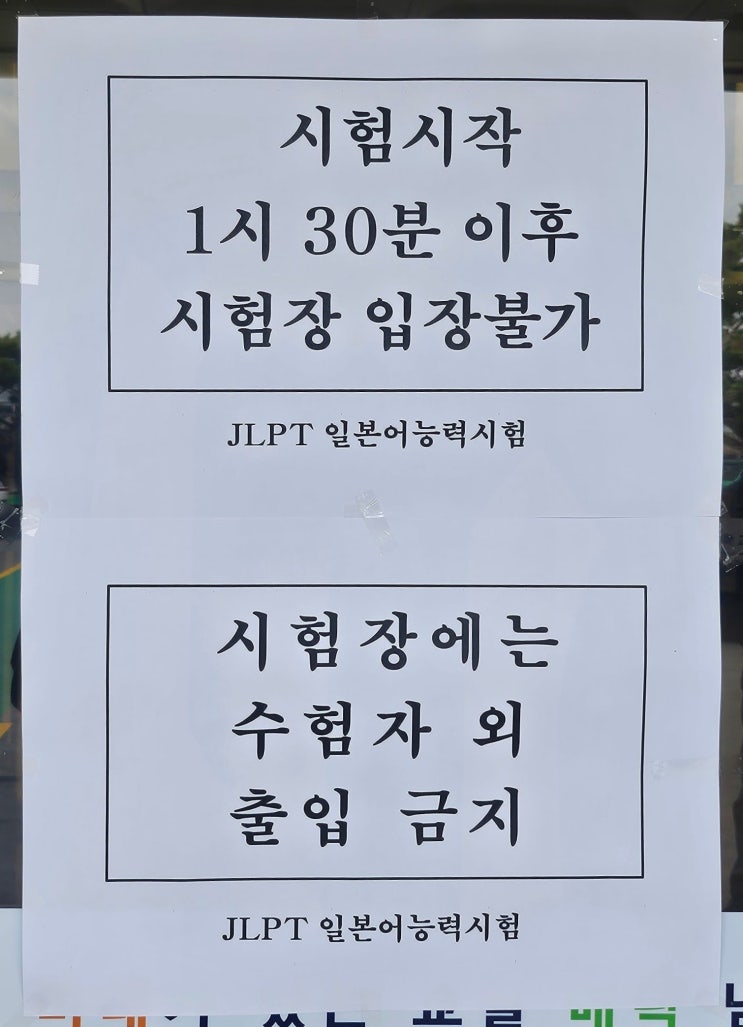 시험시작
1시 30분 이후
시험장 입장불가
JLPT 일본어능력시험
시험장에는
수험자 외
출입 금지
JLPT 일본어능력시험